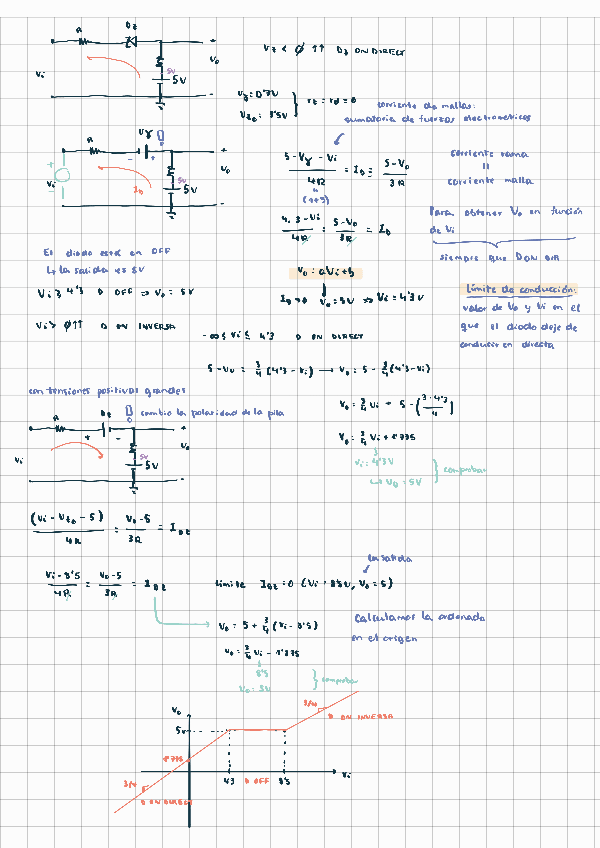 R Dz
Vi 5V 5V Vo
+
-
Vz < 0 ↑↑ Dz ON DIRECT
Vγ = 0'7V
Vzo = 3'5V
rz = rd = 0
corriente de mallas:
sumatoria de fuerzas electromotrices
R Vγ
Vi ID 5V 5V Vo
(5 - Vγ - Vi)/4R = ID = (5 - Vo)/3R
(1+3)
corriente rama
=
corriente malla
(4.3 - Vi)/4R = (5 - Vo)/3R = ID
Para obtener Vo en función
de Vi
siempre que D ON DIR
El diodo está en OFF
↳ la salida es 5V
Vo = aVi + b
ID = 0 Vo = 5V ⇒ Vi = 4'3V
Límite de conducción:
valor de Vo y Vi en el
que el diodo deje de
conducir en directa
Vi ≥ 4'3 D OFF ⇒ Vo = 5V
Vi > 0 ↑↑ D ON INVERSA
-∞ ≤ Vi ≤ 4'3 D ON DIRECT
5 - Vo = 3/4 (4'3 - Vi) → Vo = 5 - 3/4 (4'3 - Vi)
Vo = 3/4 Vi + 5 - (3·4'3/4)
Vo = 3/4 Vi + 1'775
Vi = 4'3V
↳ Vo = 5V
comprobar
con tensiones positivas grandes
R Dz cambio la polaridad de la pila
Vi 5V 5V Vo
(Vi - Vzo - 5)/4R = (Vo - 5)/3R = IDz
(Vi - 8'5)/4R = (Vo - 5)/3R = IDz
la salida
Límite IDz = 0 (Vi = 8'5V, Vo = 5)
Vo = 5 + 3/4 (Vi - 8'5)
Calculamos la ordenada
en el origen
Vo = 3/4 Vi - 1'375
8'5
Vo = 5V
comprobar
Vo
5V
1'775
3/4
D ON INVERSA
4'3 D OFF 8'5 Vi
3/4
D ON DIRECT